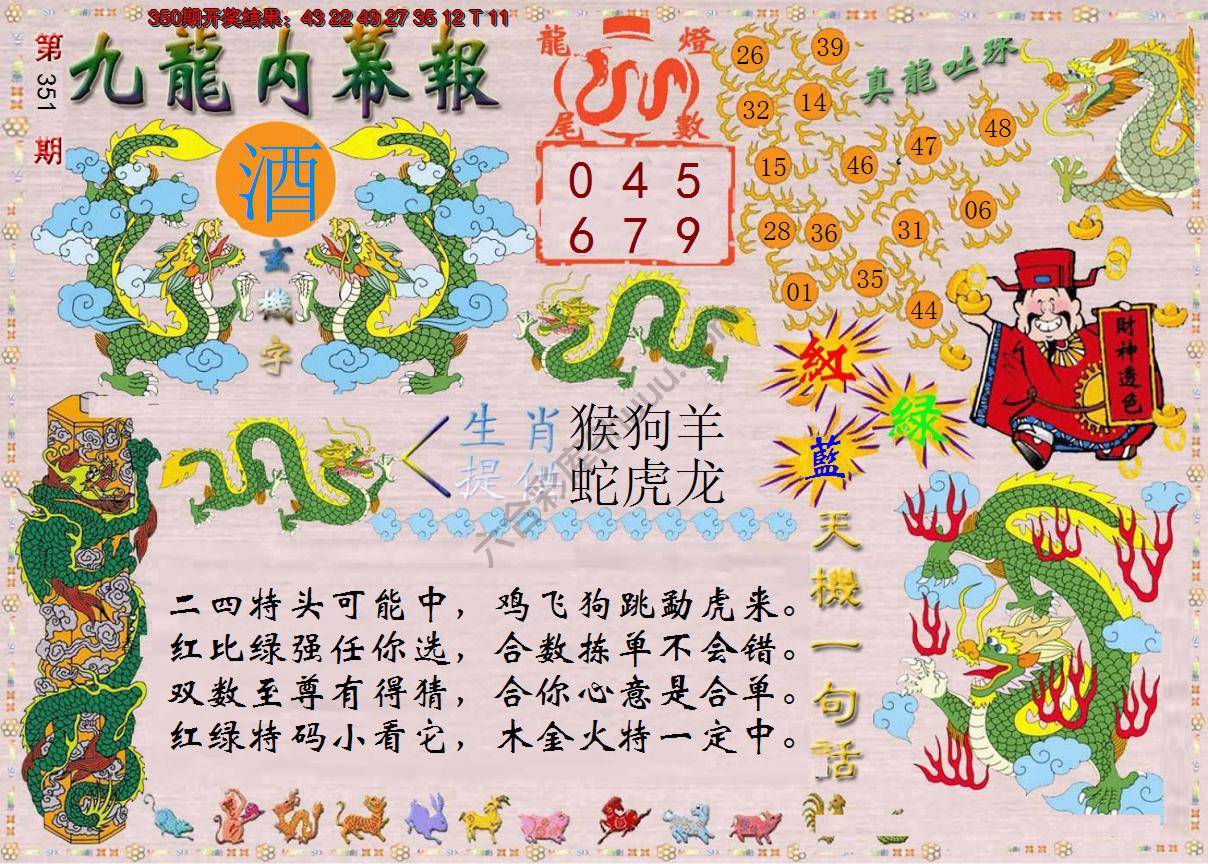 350期开奖结果：43 22 49 27 35 12 T 11
第351期
九龍内幕報
酒
玄機字
龍燈
尾數
0 4 5
6 7 9
真龍吐珠
26 39
32 14
15 46 47 48
28 36 31 06
01 35 44
紅
綠
藍
財神透色
生肖 猴狗羊
提供 蛇虎龙
天機一句話
二四特头可能中，鸡飞狗跳勐虎来。
红比绿强任你选，合数拣单不会错。
双数至尊有得猜，合你心意是合单。
红绿特码小看它，木金火特一定中。